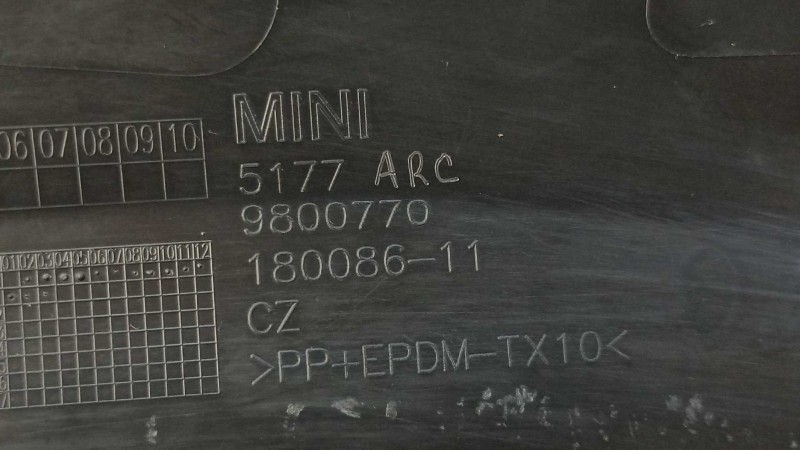 MINI
5177 ARC
9800770
180086-11
CZ
>PP+EPDM-TX10<
06 07 08 09 10
01 02 03 04 05 06 07 08 09 10 11 12